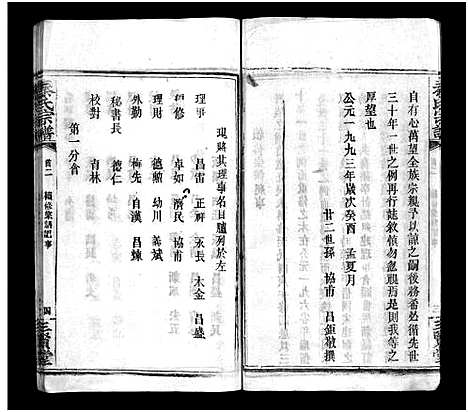 自有心萬望全族宗親予以諒之嗣後務必循先世
三十年一世之例再行誌敘慎勿忽視焉是則我等之
厚望也
公元一九九三年歲次癸酉孟夏月
廿二世孫 協甫 昌鉅敬撰
現將其理事名目臚列於左
理事 昌雷 正祥 永長 木金 昌盛
卓如 濟民 協甫
理財 德勳 幼川 義斌
外勤 梅先 自漢 昌煉
秘書長 德仁
校對 育林
第一分會
氏宗譜
首二
四
三賢堂